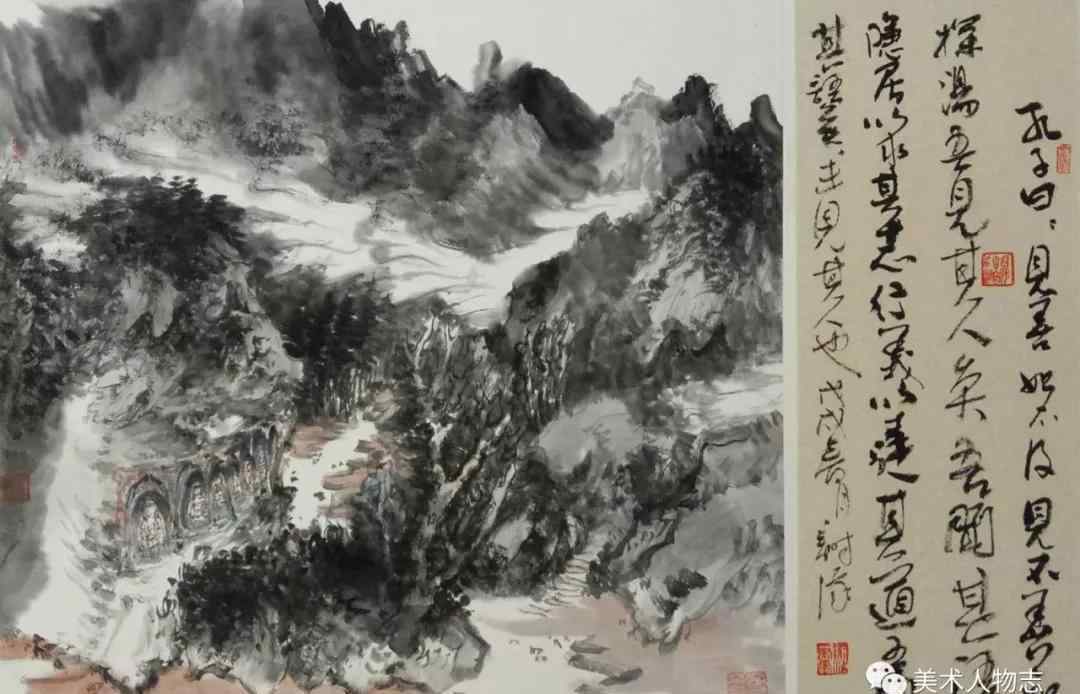 孔子曰见善如不及見不善
探湯吾見其人矣吾聞其
隱居以求其志行義以達其道吾
其語矣未見其人也戊戌
美术人物志